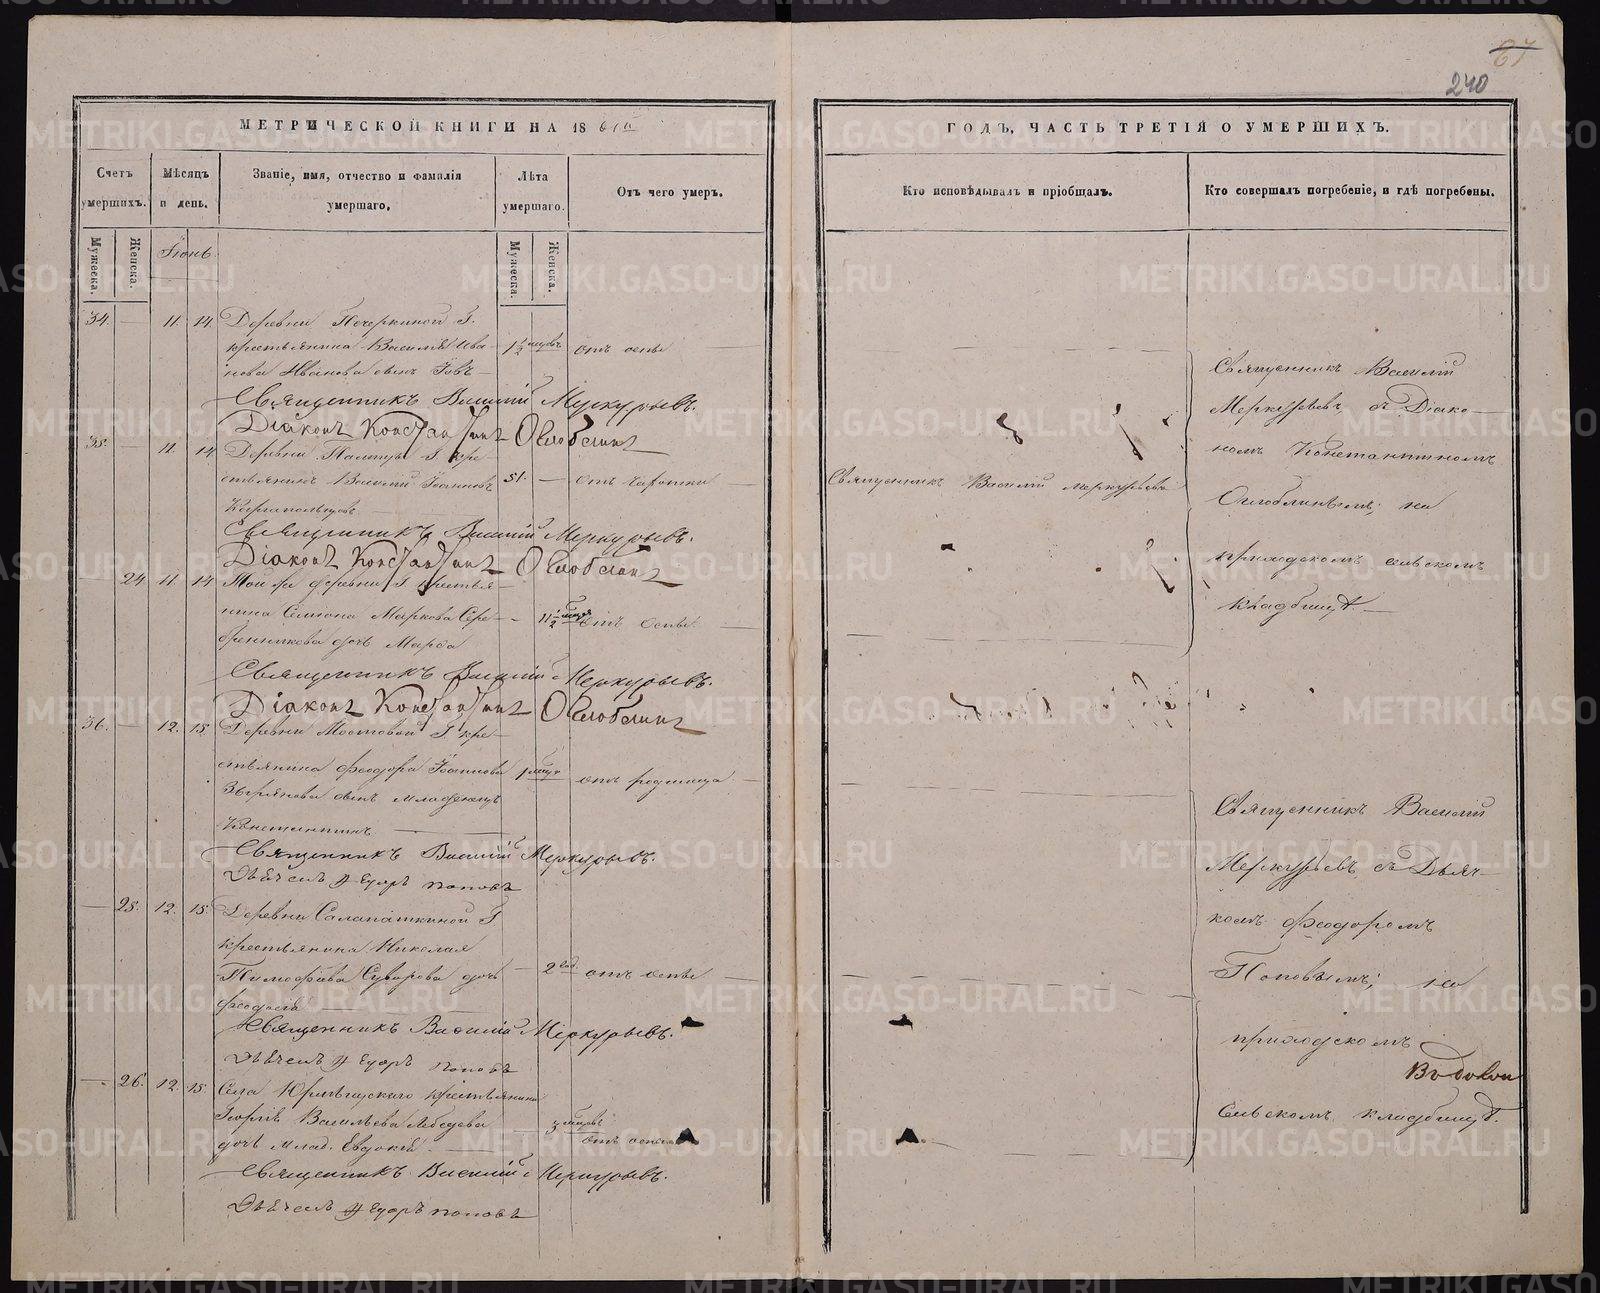 67
240
МЕТРИЧЕСКОЙ КНИГИ НА 18
ГОДЪ, ЧАСТЬ ТРЕТІЯ О УМЕРШИХЪ.
Счетъ умершихъ.
Мѣсяцъ и день.
Званіе, имя, отчество и фамилія умершаго.
Лѣта умершаго.
Отъ чего умеръ.
Кто исповѣдывалъ и пріобщалъ.
Кто совершалъ погребеніе, и гдѣ погребены.
Мужеска.
Женска.
Іюнь.
Мужеска.
Женска.
34. — 11. 14. Деревни Печеркиной Г.
крестьянина Василія Ива-
нова Иванова сынъ Іовъ —
1 1/2 мцовъ отъ оспы
Священникъ Василій Меркурьевъ.
Діаконъ Константинъ Оглоблинъ
35. — 11. 14. Деревни Г. кре-
стьянинъ Василій Іоанновъ
51. — отъ чахотки —
Священникъ Василій Меркурьевъ
Священникъ Василій Меркурьевъ.
Діаконъ Константинъ Оглоблинъ
— 24. 11. 14. Той же деревни Г. крестья-
нина Симіона Маркова Сере-
бренникова дочь Марѳа
11 1/2 отъ оспы
Священникъ Василій Меркурьевъ.
Діаконъ Константинъ Оглоблинъ
Священникъ Василій
Меркурьевъ съ Діако-
номъ Константиномъ
Оглоблинымъ; на
приходскомъ сельскомъ
кладбищѣ —
36. — 12. 15. Деревни Мостовой Г. кре-
стьянина Ѳеодора Іоаннова
Зырянова сынъ младенецъ
Константинъ —
1 мцъ отъ родимца —
Священникъ Василій Меркурьевъ.
Дьячекъ Ѳедоръ Поповъ
— 25. 12. 15. Деревни Салапаткиной Г
крестьянина Николая
Тимоѳѣева Суворова дочь
Ѳеодосья
2 год. отъ оспы —
Священникъ Василій Меркурьевъ.
Дьячекъ Ѳедоръ Поповъ
— 26. 12. 15. Села крестьянина
Георгія Васильева Лебедева
дочь млад. Евдокія —
3 мцовъ отъ оспы
Священникъ Василій Меркурьевъ.
Дьячекъ Ѳедоръ Поповъ
Священникъ Василій
Меркурьевъ съ Дьяч-
комъ Ѳеодоромъ
Поповымъ; на
приходскомъ
сельскомъ кладбищѣ.
METRIKI.GASO-URAL.RU